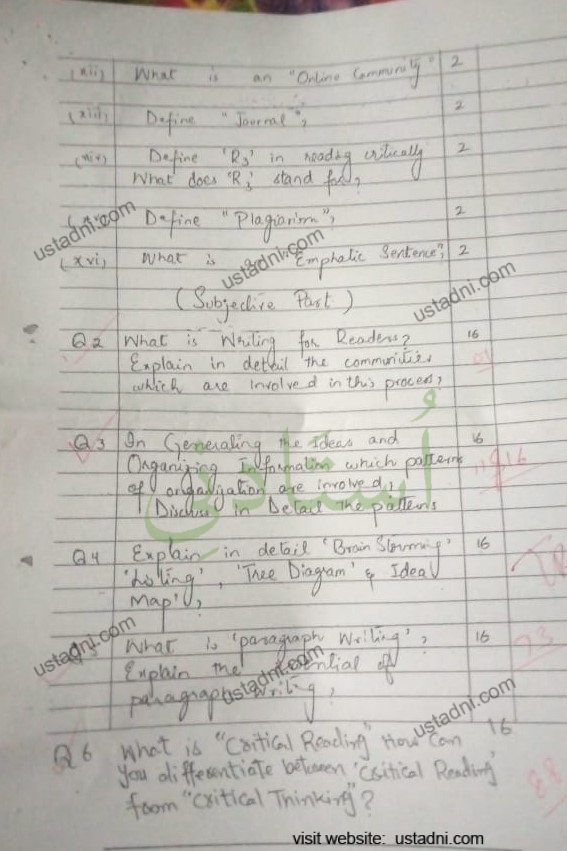 (xii) What is an "Online Community" 2
(xiii) Define "Journal", 2
(xiv) Define 'R3' in reading critically 2
What does 'R3' stand for?
Define "Plagiarism", 2
ustadni.com
(xvi) What is Emphatic Sentence", 2
ustadni.com
ustadni.com
(Subjective Part)
Q2 What is Writing for Readers? 16
Explain in detail the communities
which are involved in this process,
Q3 In Generating the Ideas and 16
Organizing Information which patterns
of organization are involved,
Discuss in Detail the patterns
اُستادنی
Q4 Explain in detail 'Brain Storming' 16
'Listing', 'Tree Diagram' & Ideal
Map',
ustadni.com
What is 'paragraph Writing', 16
Explain the of
ustadni.com
paragraph writing,
ustadni.com
Q6 What is "Critical Reading" How Can 16
you differentiate between 'Critical Reading'
from "Critical Thinking"?
visit website: ustadni.com